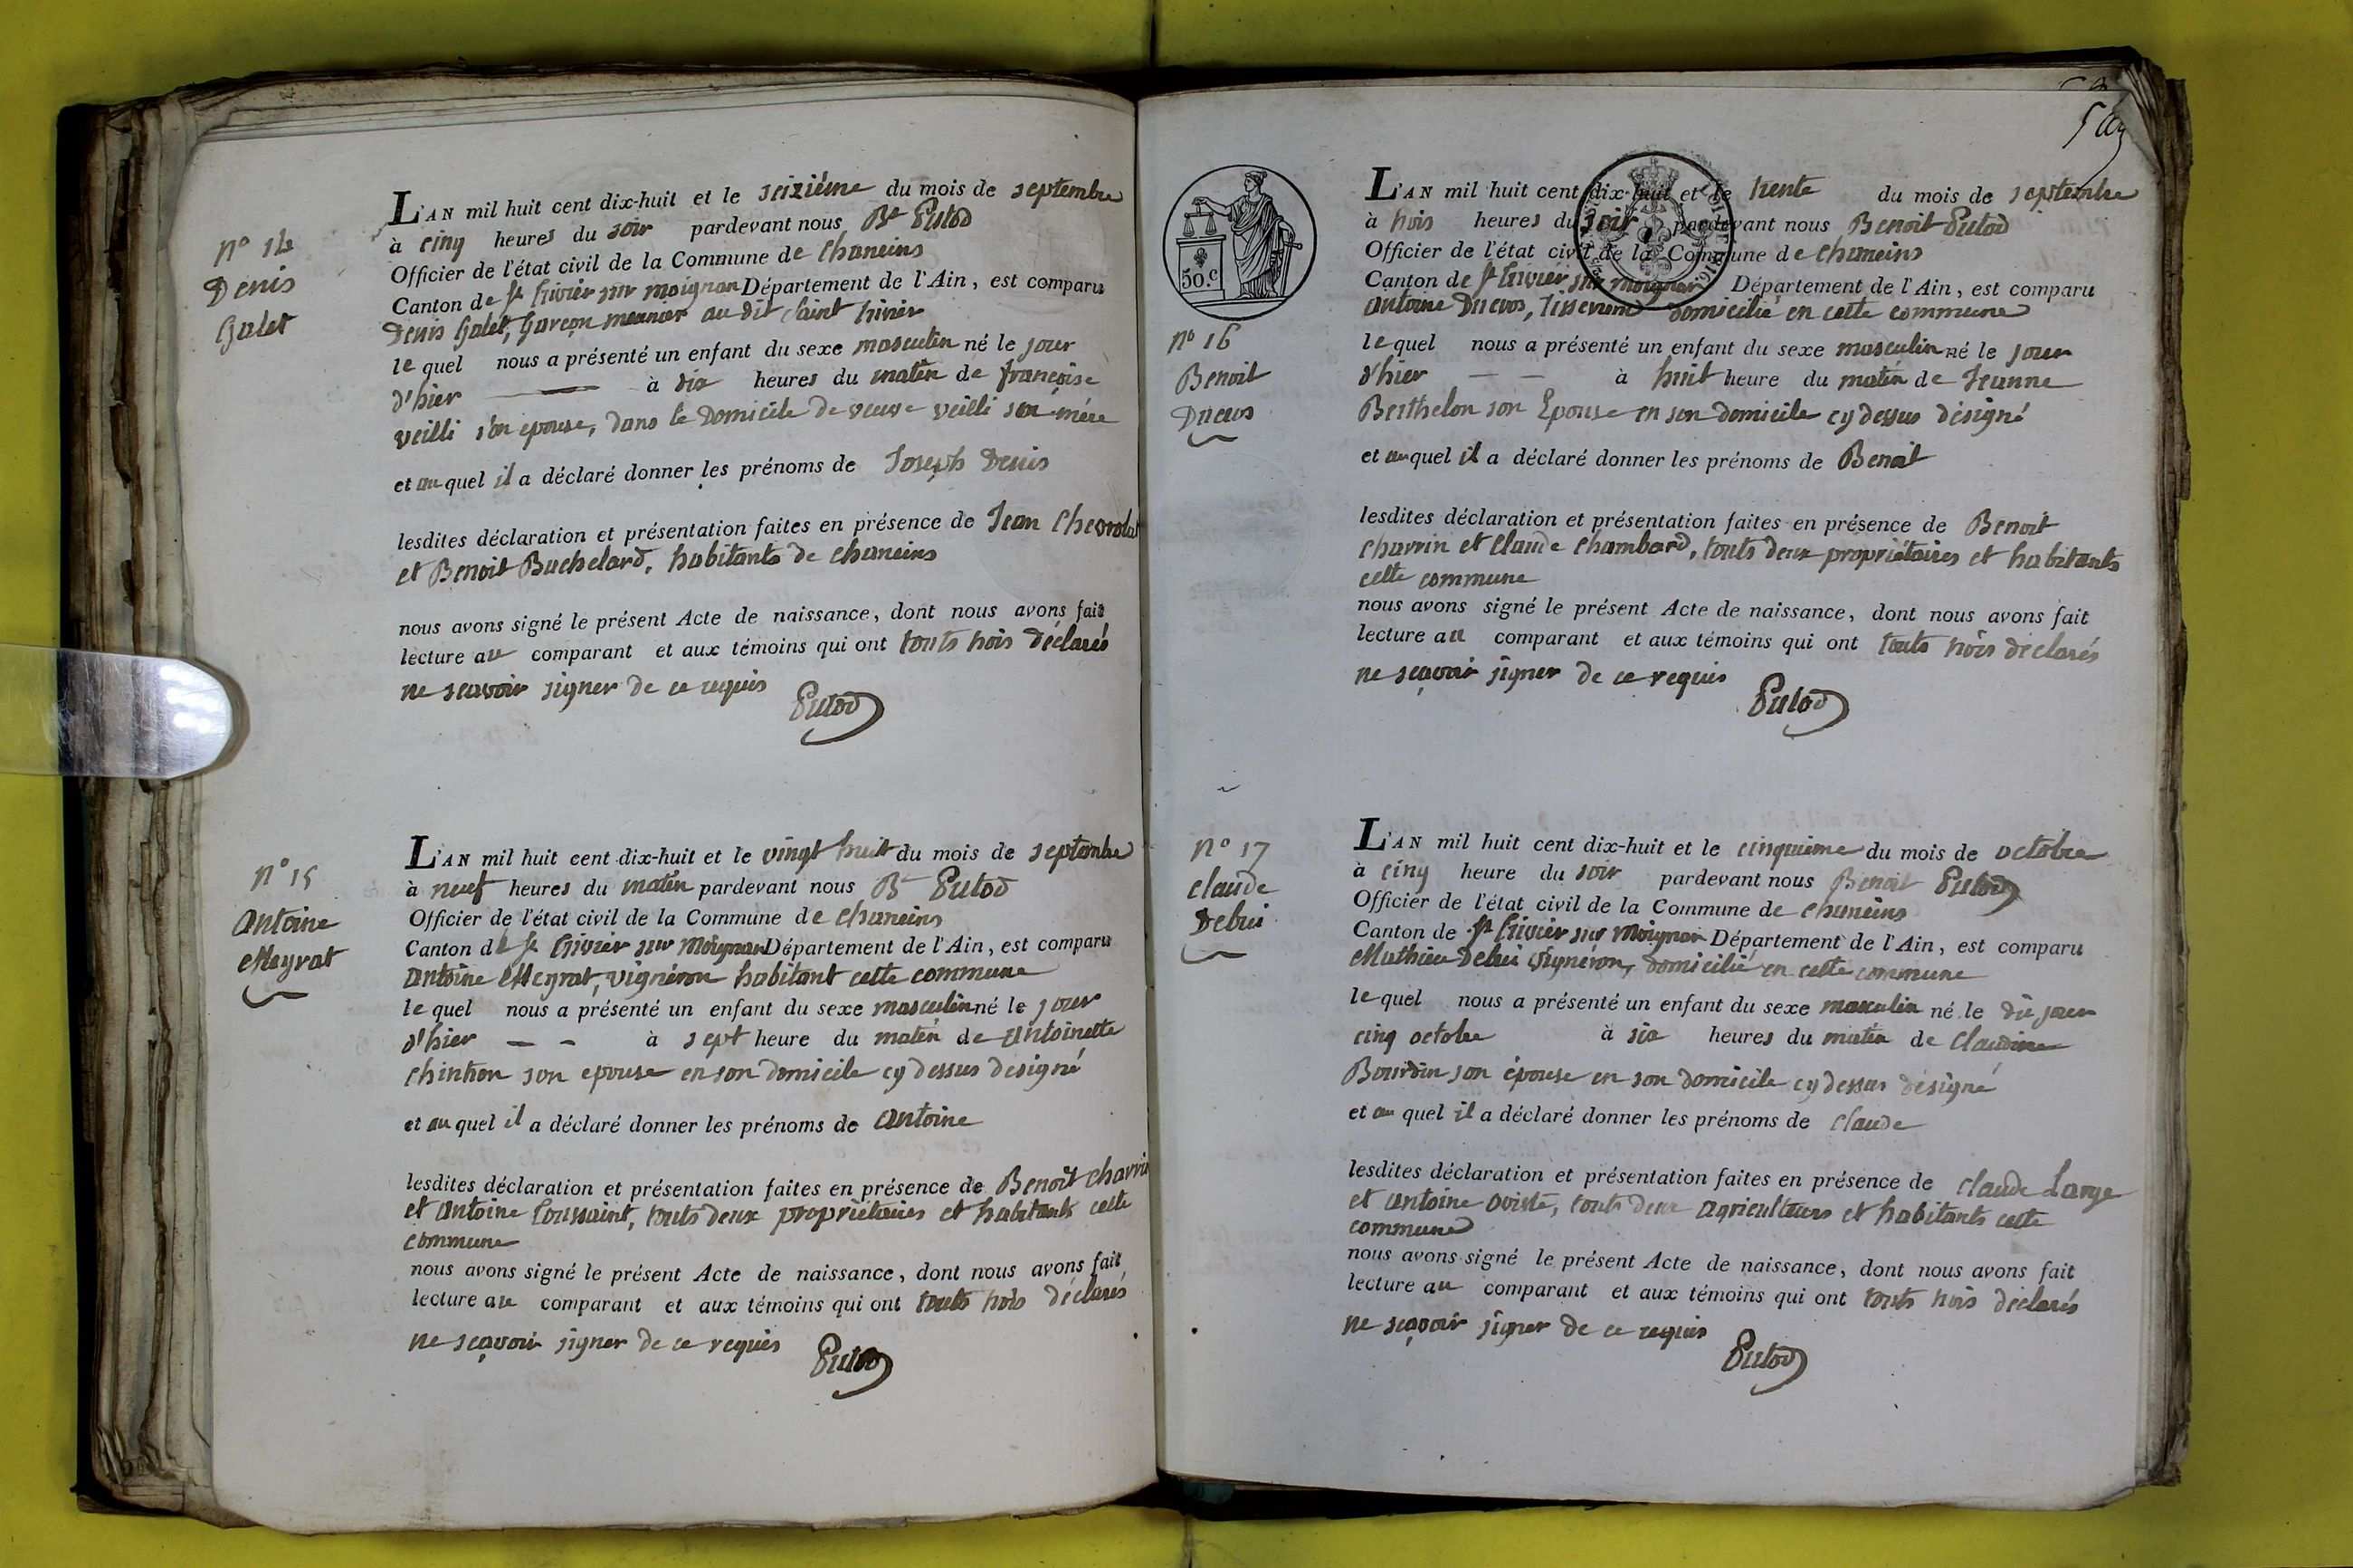 L'AN mil huit cent dix-huit et le seizième du mois de septembre
à cinq heures du soir pardevant nous Bt Putod
Officier de l'état civil de la Commune de Chaneins
Canton de St trivier sur moignan Département de l'Ain, est comparu
Denis Galet, Garçon meunier au dit Saint trivier
le quel nous a présenté un enfant du sexe masculin né le jour
d'hier à dix heures du matin de françoise
veilli son epouse, dans le domicile de veuve veilli son mére
et au quel il a déclaré donner les prénoms de Joseph Denis
lesdites déclaration et présentation faites en présence de Jean Chevrolat
et Benoit Buchelard, habitants de chaneins
nous avons signé le présent Acte de naissance, dont nous avons fait
lecture au comparant et aux témoins qui ont touts trois déclarés
ne sçavoir signer de ce requis
Putod
n° 14
Denis
Galet
L'AN mil huit cent dix-huit et le vingt huit du mois de septembre
à neuf heures du matin pardevant nous Bt Putod
Officier de l'état civil de la Commune de chaneins
Canton de St trivier sur moignan Département de l'Ain, est comparu
antoine Meyrat, vigneron habitant cette commune
le quel nous a présenté un enfant du sexe masculin né le jour
d'hier à sept heure du matin de antoinette
chintron son epouse en son domicile cy dessus designé
et au quel il a déclaré donner les prénoms de antoine
lesdites déclaration et présentation faites en présence de Benoit charvin
et antoine toussaint, touts deux propriétaires et habitants cette
commune
nous avons signé le présent Acte de naissance, dont nous avons fait
lecture au comparant et aux témoins qui ont touts trois déclarés
ne sçavoir signer de ce requis
Putod
n° 15
antoine
Meyrat
50.c
L'AN mil huit cent dix-huit et le trente du mois de septembre
à trois heures du soir pardevant nous Benoit Putod
Officier de l'état civil de la Commune de chaneins
Canton de St trivier sur moignan Département de l'Ain, est comparu
antoine Ducros, tisserand domicilié en cette commune
le quel nous a présenté un enfant du sexe masculin né le jour
d'hier à huit heure du matin de Jeanne
Berthelon son Epouse en son domicile cy dessus désigné
et au quel il a déclaré donner les prénoms de Benoit
lesdites déclaration et présentation faites en présence de Benoit
charvin et claude chambard, touts deux propriétaires et habitants
cette commune
nous avons signé le présent Acte de naissance, dont nous avons fait
lecture au comparant et aux témoins qui ont touts trois déclarés
ne sçavoir signer de ce requis
Putod
n° 16
Benoit
Ducros
L'AN mil huit cent dix-huit et le cinquième du mois de octobre
à cinq heure du soir pardevant nous Benoit Putod
Officier de l'état civil de la Commune de chaneins
Canton de St trivier sur moignan Département de l'Ain, est comparu
Mathieu Debui vigneron, domicilié en cette commune
le quel nous a présenté un enfant du sexe masculin né le dit jour
cinq octobre à six heures du matin de claudine
Bourdin son épouse en son domicile cy dessus désigné
et au quel il a déclaré donner les prénoms de claude
lesdites déclaration et présentation faites en présence de claude Large
et antoine oviste, touts deux agriculteurs et habitants cette
commune
nous avons signé le présent Acte de naissance, dont nous avons fait
lecture au comparant et aux témoins qui ont touts trois déclarés
ne sçavoir signer de ce requis
Putod
n° 17
claude
Debui